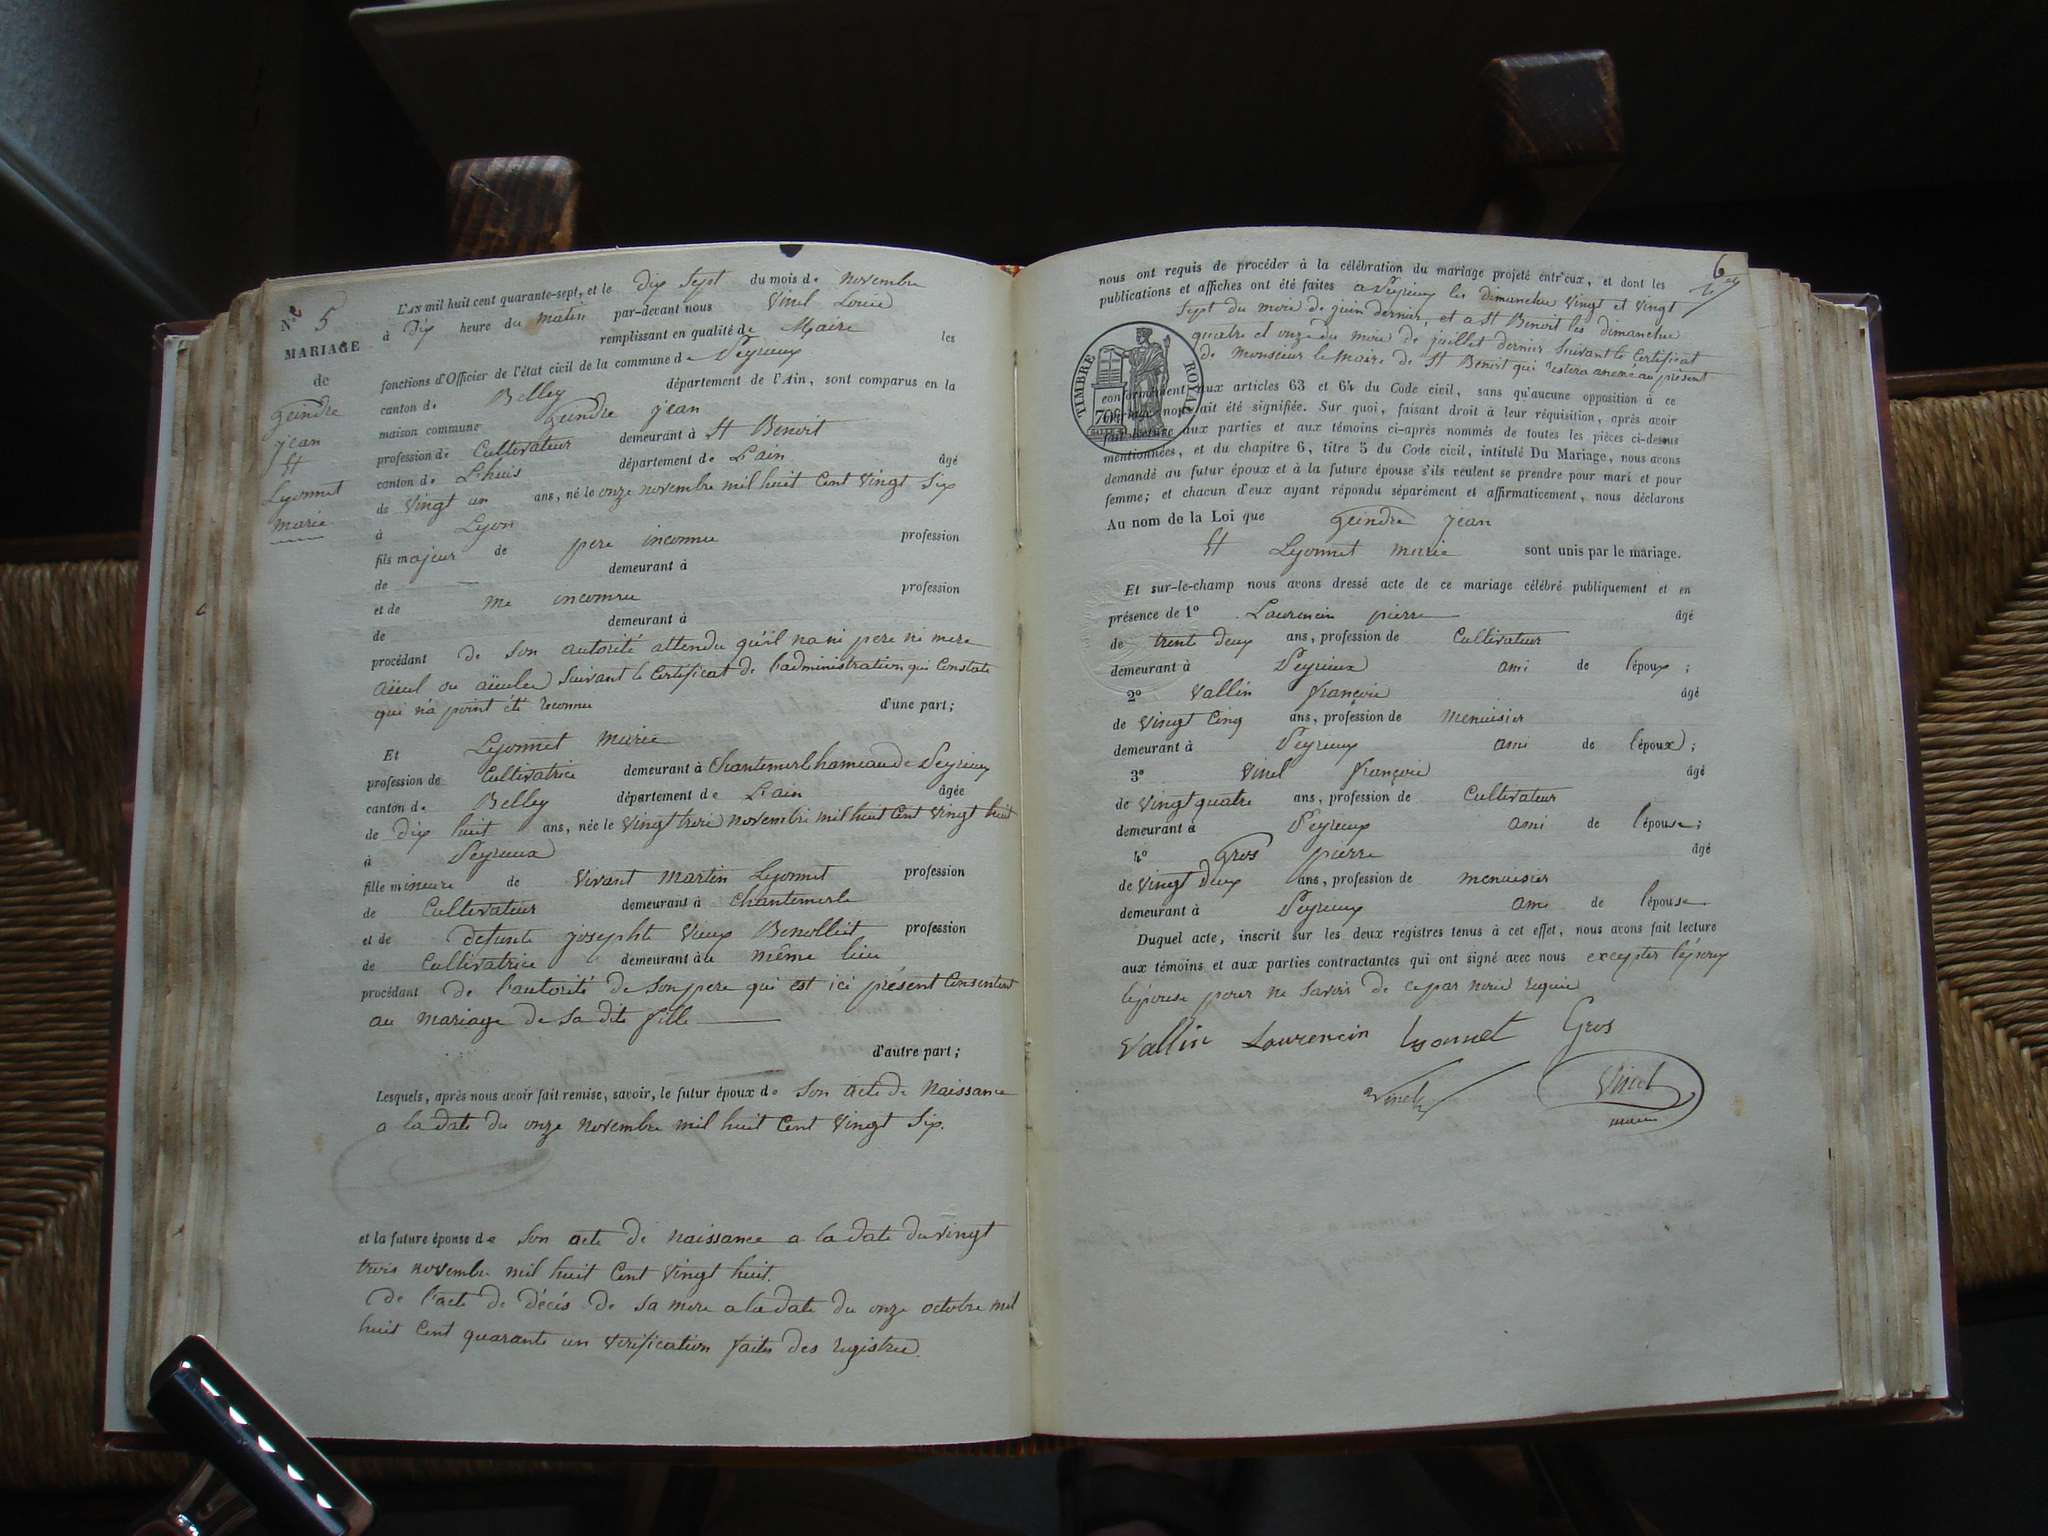 N.º 5
MARIAGE
de
Geindre
jean
Et
Lyonnet
marie
L'AN mil huit cent quarante-sept, et le dix sept du mois de novembre
à dix heure du matin par-devant nous Vinel Louis
remplissant en qualité de Maire les
fonctions d'Officier de l'état civil de la commune de Peyrieux
canton de Belley département de l'Ain, sont comparus en la
maison commune Geindre jean
profession de Cultivateur demeurant à St Benoit
canton de L'huis département de L'ain âgé
de vingt un ans, né le onze novembre mil huit Cent vingt Six
à Lyon
fils majeur de pere inconnu profession
de demeurant à
et de me inconnu profession
de demeurant à
procédant de son autorité attendu qu'il na ni pere ni mere
aïeul ou aïeules Suivant le Certificat de l'administration qui Constate
qui n'a point été reconnu d'une part;
Et Lyonnet marie
profession de Cultivatrice demeurant à Chantemerle hameau de Peyrieux
canton de Belley département de L'ain âgée
de dix huit ans, née le vingt trois novembre mil huit Cent vingt huit
à Peyrieux
fille mineure de Vivant Martin Lyonnet profession
de Cultivateur demeurant à Chantemerle
et de defunte josephte Vieux Benollist profession
de Cultivatrice demeurant au même lieu
procédant de l'autorité de Son pere qui est ici présent Consentent
au mariage de Sa dite fille
d'autre part;
Lesquels, après nous avoir fait remise, savoir, le futur époux de Son acte de Naissance
a la date du onze novembre mil huit Cent vingt Six.
et la future épouse de Son acte de naissance a la date du vingt
trois novembre mil huit Cent vingt huit.
de l'acte de décés de Sa mere a la date du onze octobre mil
huit Cent quarante un verification faites des registres.
6
nous ont requis de procéder à la célébration du mariage projeté entr'eux, et dont les
publications et affiches ont été faites a Peyrieux les dimanches vingt et vingt
Sept du mois de juin dernier, et a St Benoit les dimanches
quatre et onze du mois de juillet dernier Suivant le Certificat
de Monsieur le Maire de St Benoit qui restera anexé au présent
TIMBRE ROYAL
70c
conformément aux articles 63 et 64 du Code civil, sans qu'aucune opposition à ce
mariage nous ait été signifiée. Sur quoi, faisant droit à leur réquisition, après avoir
fait lecture aux parties et aux témoins ci-après nommés de toutes les pièces ci-dessus
mentionnées, et du chapitre 6, titre 5 du Code civil, intitulé Du Mariage, nous avons
demandé au futur époux et à la future épouse s'ils veulent se prendre pour mari et pour
femme; et chacun d'eux ayant répondu séparément et affirmativement, nous déclarons
Au nom de la Loi que Geindre jean
Et Lyonnet marie sont unis par le mariage.
Et sur-le-champ nous avons dressé acte de ce mariage célébré publiquement et en
présence de 1º Laurencin pierre âgé
de trent deux ans, profession de Cultivateur
demeurant à Peyrieux ami de l'époux;
2º Vallin françois âgé
de vingt Cinq ans, profession de menuisier
demeurant à Peyrieux ami de l'époux;
3º Vinel françois âgé
de vingt quatre ans, profession de Cultivateur
demeurant à Peyrieux ami de l'épouse;
4º Gros pierre âgé
de vingt deux ans, profession de menuisier
demeurant à Peyrieux ami de l'épouse
Duquel acte, inscrit sur les deux registres tenus à cet effet, nous avons fait lecture
aux témoins et aux parties contractantes qui ont signé avec nous excepter l'époux
l'épouse pour ne Savoir de ce par nous requis
Vallin Laurencin Lyonnet Gros
Vinel Vinel
maire